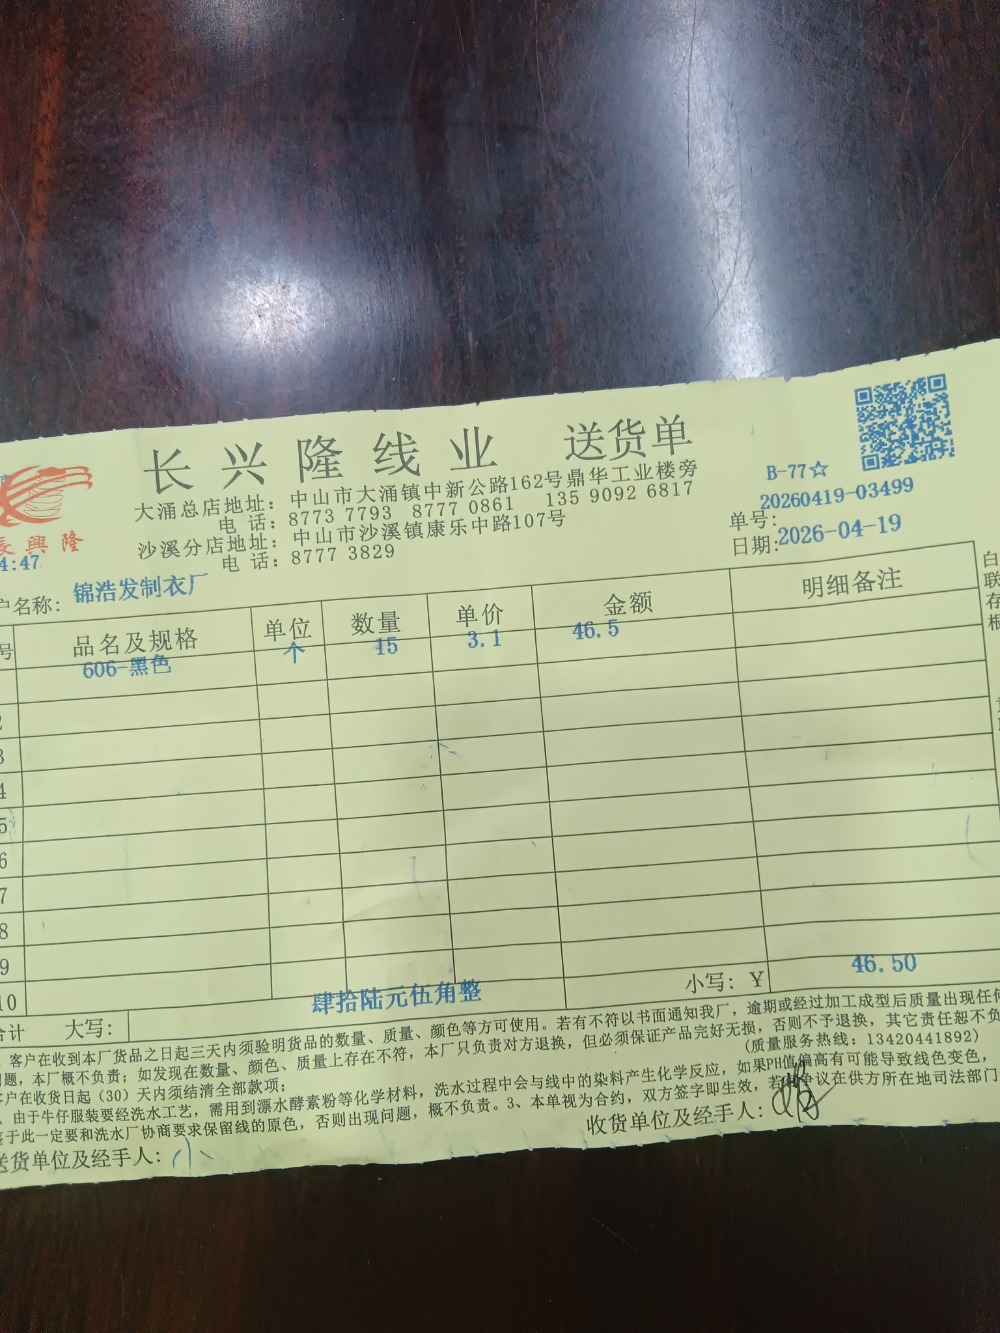 长兴隆线业 送货单
B-77☆
大涌总店地址：中山市大涌镇中新公路162号鼎华工业楼旁
电 话：8773 7793 8777 0861 135 9092 6817
沙溪分店地址：中山市沙溪镇康乐中路107号
电 话：8777 3829
長興隆
4:47
单号：20260419-03499
日期：2026-04-19
户名称：锦浩发制衣厂
号 品名及规格 单位 数量 单价 金额 明细备注
606-黑色 个 15 3.1 46.5
2
3
4
5
6
7
8
9
10
合计 大写： 肆拾陆元伍角整 小写：¥ 46.50
客户在收到本厂货品之日起三天内须验明货品的数量、质量、颜色等方可使用。若有不符以书面通知我厂，逾期或经过加工成型后质量出现任何
问题，本厂概不负责；如发现在数量、颜色、质量上存在不符，本厂只负责对方退换，但必须保证产品完好无损，否则不予退换，其它责任恕不负
客户在收货日起（30）天内须结清全部款项； (质量服务热线：13420441892)
、由于牛仔服装要经洗水工艺，需用到漂水酵素粉等化学材料，洗水过程中会与线中的染料产生化学反应，如果PH值偏高有可能导致线色变色，
鉴于此一定要和洗水厂协商要求保留线的原色，否则出现问题，概不负责。3、本单视为合约，双方签字即生效，若 争议在供方所在地司法部门
送货单位及经手人：小 收货单位及经手人：
白联存根